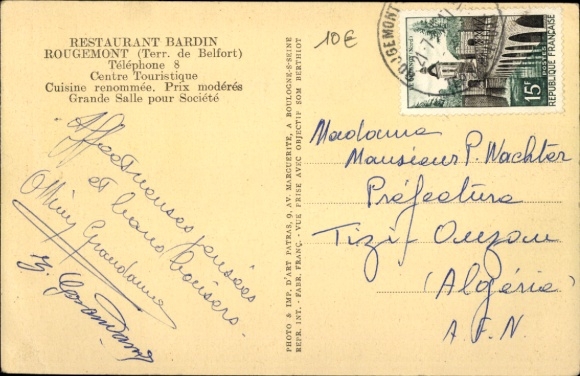 RESTAURANT BARDIN
ROUGEMONT (Terr. de Belfort)
Téléphone 8
Centre Touristique
Cuisine renommée. Prix modérés
Grande Salle pour Société
10€
ROUGEMONT
15F
POSTES
REPUBLIQUE FRANÇAISE
Affectueuses pensées
et bons baisers
Grandame
PHOTO & IMP. D'ART PATRAS, 9, AV. MARGUERITE, A BOULOGNE-S-SEINE
REPR. INT. - FABR. FRANÇ. - VUE PRISE AVEC OBJECTIF SOM BERTHIOT
Madame
Monsieur P. Wachter
Préfecture
Tizi-Ouzou
(Algérie)
A.F.N.